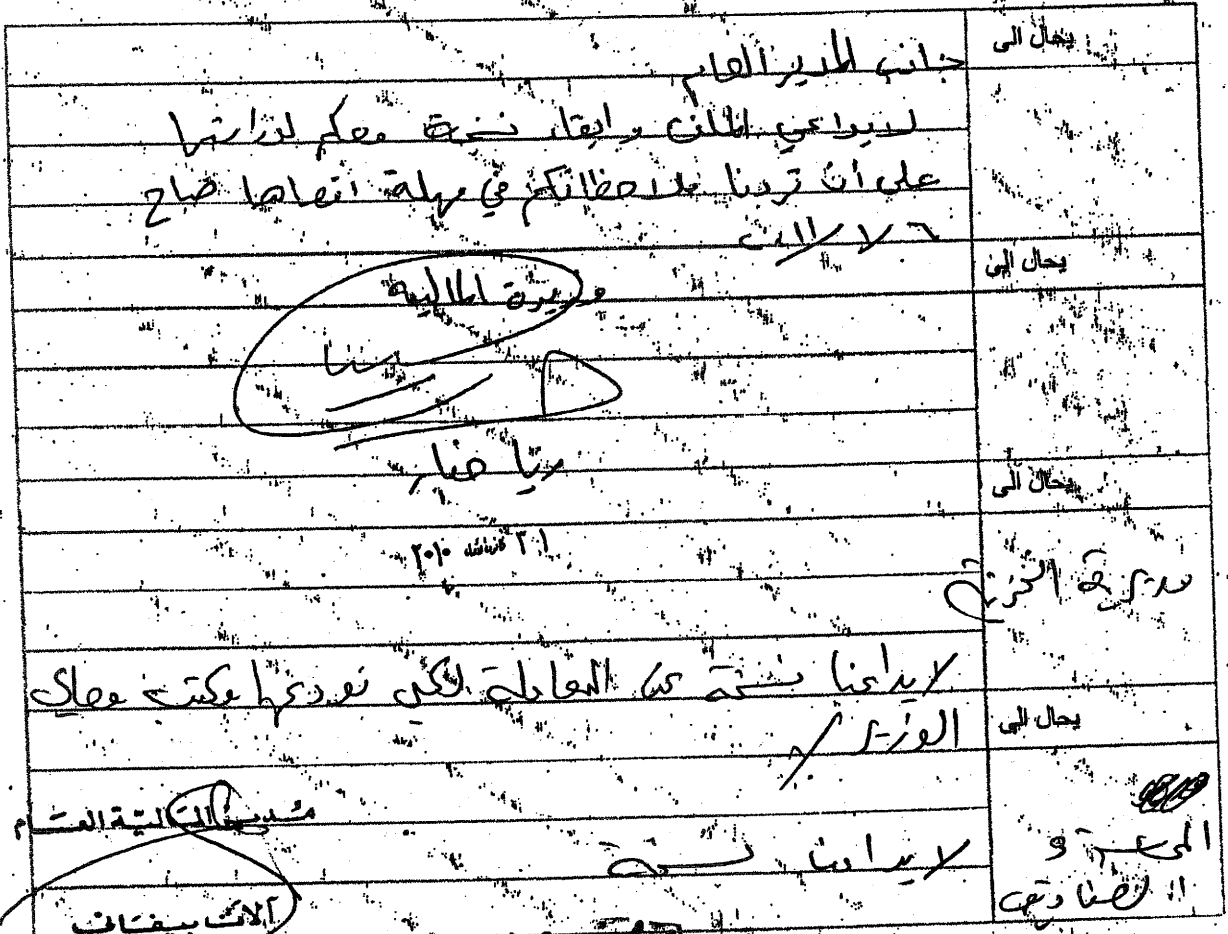 يحال الى
جانب المدير العام
لايداعي الملف وابقاء نسخة معكم لدراستها
على أن تردنا ملاحظاتكم في مهلة اقصاها صباح
٦ / ١ / ٢٠١١
يحال الى
وزيرة المالية
ريا حفار
يحال الى
٣١ كانون الاول ٢٠١٠
مديرية الخزينة
لايداعنا نسخة عن المعاملة لكي نودعها مكتب معالي
الوزير /
يحال الى
مدير المالية العام
المحاسبة و
لايداعنا نسخة
الصناديق
آلان بيفاني